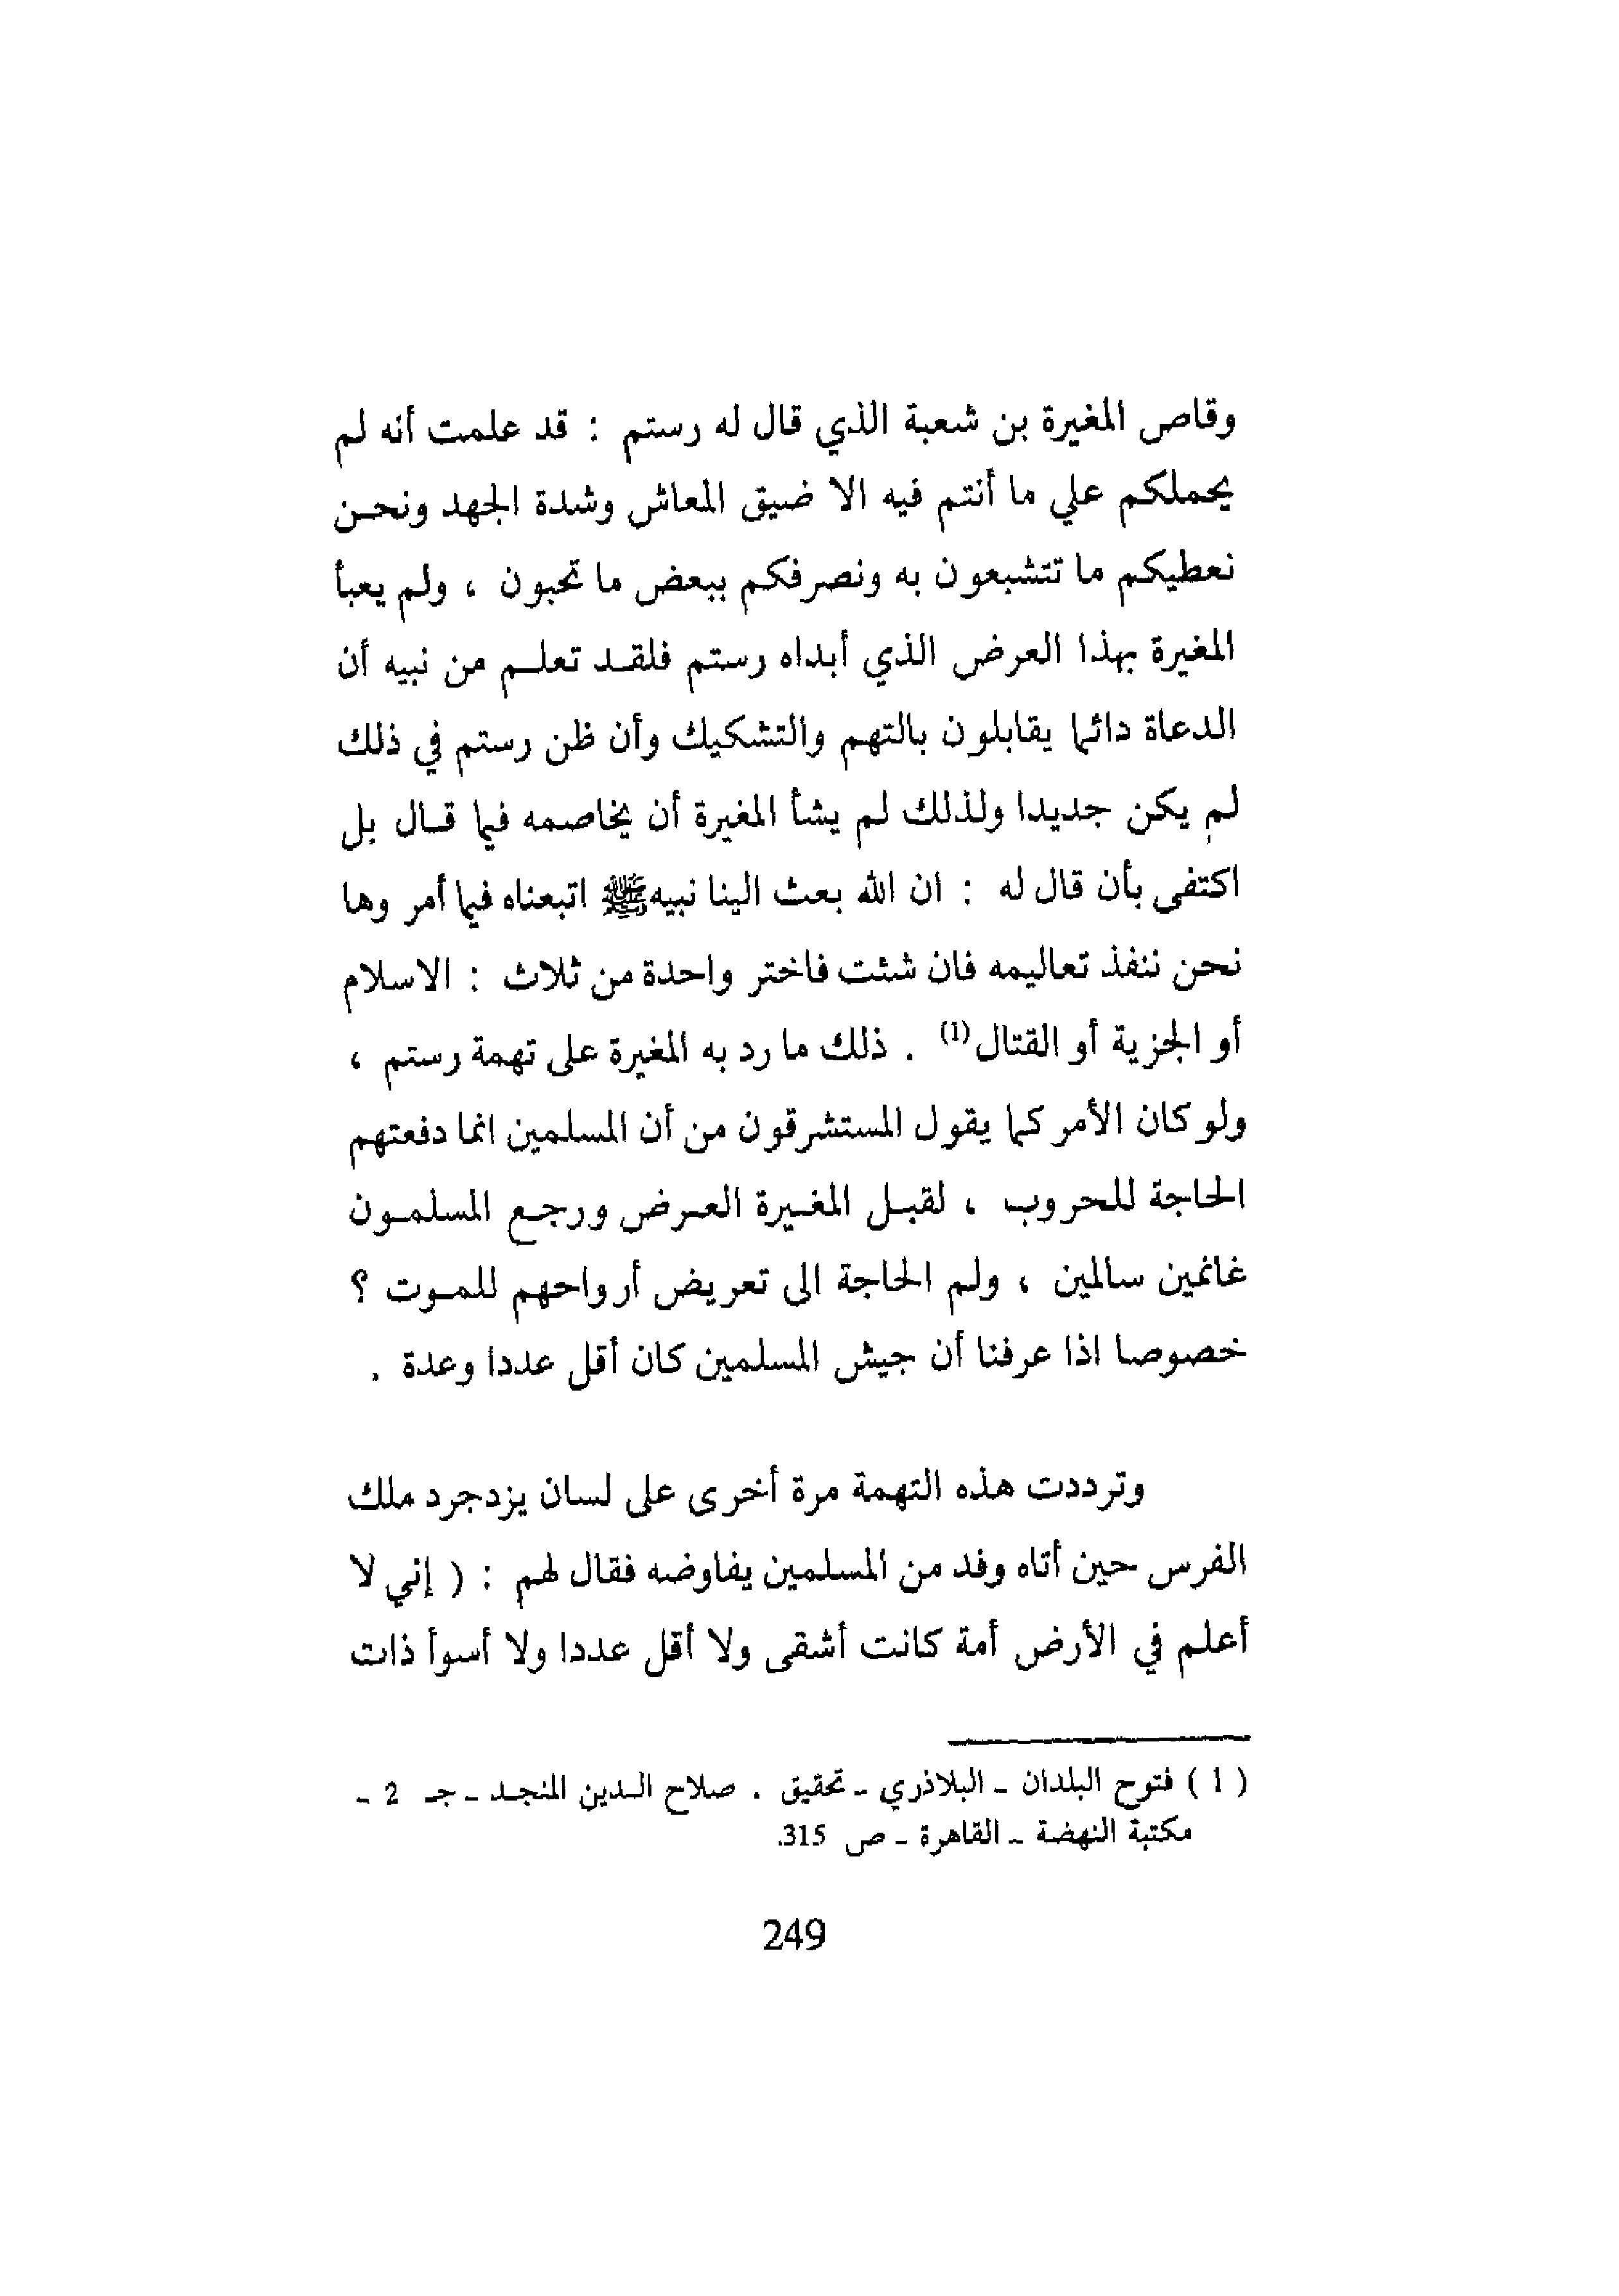 وقاص المغيرة بن شعبة الذي قال له رستم : قد علمت أنه لم
يحملكم علي ما أنتم فيه الا ضيق المعاش وشدة الجهد ونحن
نعطيكم ما تتشبعون به ونصرفكم ببعض ما تحبون ، ولم يعبأ
المغيرة بهذا العرض الذي أبداه رستم فلقد تعلم من نبيه أن
الدعاة دائما يقابلون بالتهم والتشكيك وأن ظن رستم في ذلك
لم يكن جديدا ولذلك لم يشأ المغيرة أن يخاصمه فيما قال بل
اكتفى بأن قال له : ان الله بعث الينا نبيه ﷺ اتبعناه فيما أمر وها
نحن ننفذ تعاليمه فان شئت فاختر واحدة من ثلاث : الاسلام
أو الجزية أو القتال (1) . ذلك ما رد به المغيرة على تهمة رستم ،
ولو كان الأمر كما يقول المستشرقون من أن المسلمين انما دفعتهم
الحاجة للحروب ، لقبل المغيرة العرض ورجع المسلمون
غانمين سالمين ، ولم الحاجة الى تعريض أرواحهم للموت ؟
خصوصا اذا عرفنا أن جيش المسلمين كان أقل عددا وعدة .
وترددت هذه التهمة مرة أخرى على لسان يزدجرد ملك
الفرس حين أتاه وفد من المسلمين يفاوضه فقال لهم : ( إني لا
أعلم في الأرض أمة كانت أشقى ولا أقل عددا ولا أسوأ ذات
( 1 ) فتوح البلدان - البلاذري - تحقيق . صلاح الدين المنجد - جـ 2 -
مكتبة النهضة - القاهرة - ص 315.
249